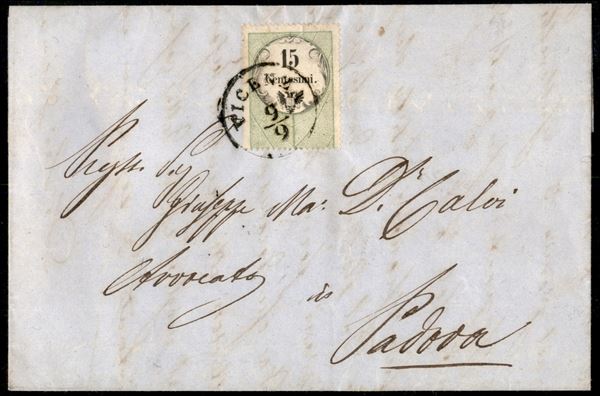 15
Centesimi.
VICENZA
9/9
Pregt. Sig
Giuseppe Ma: Dr. Calvi
Avvocato
in
Padova